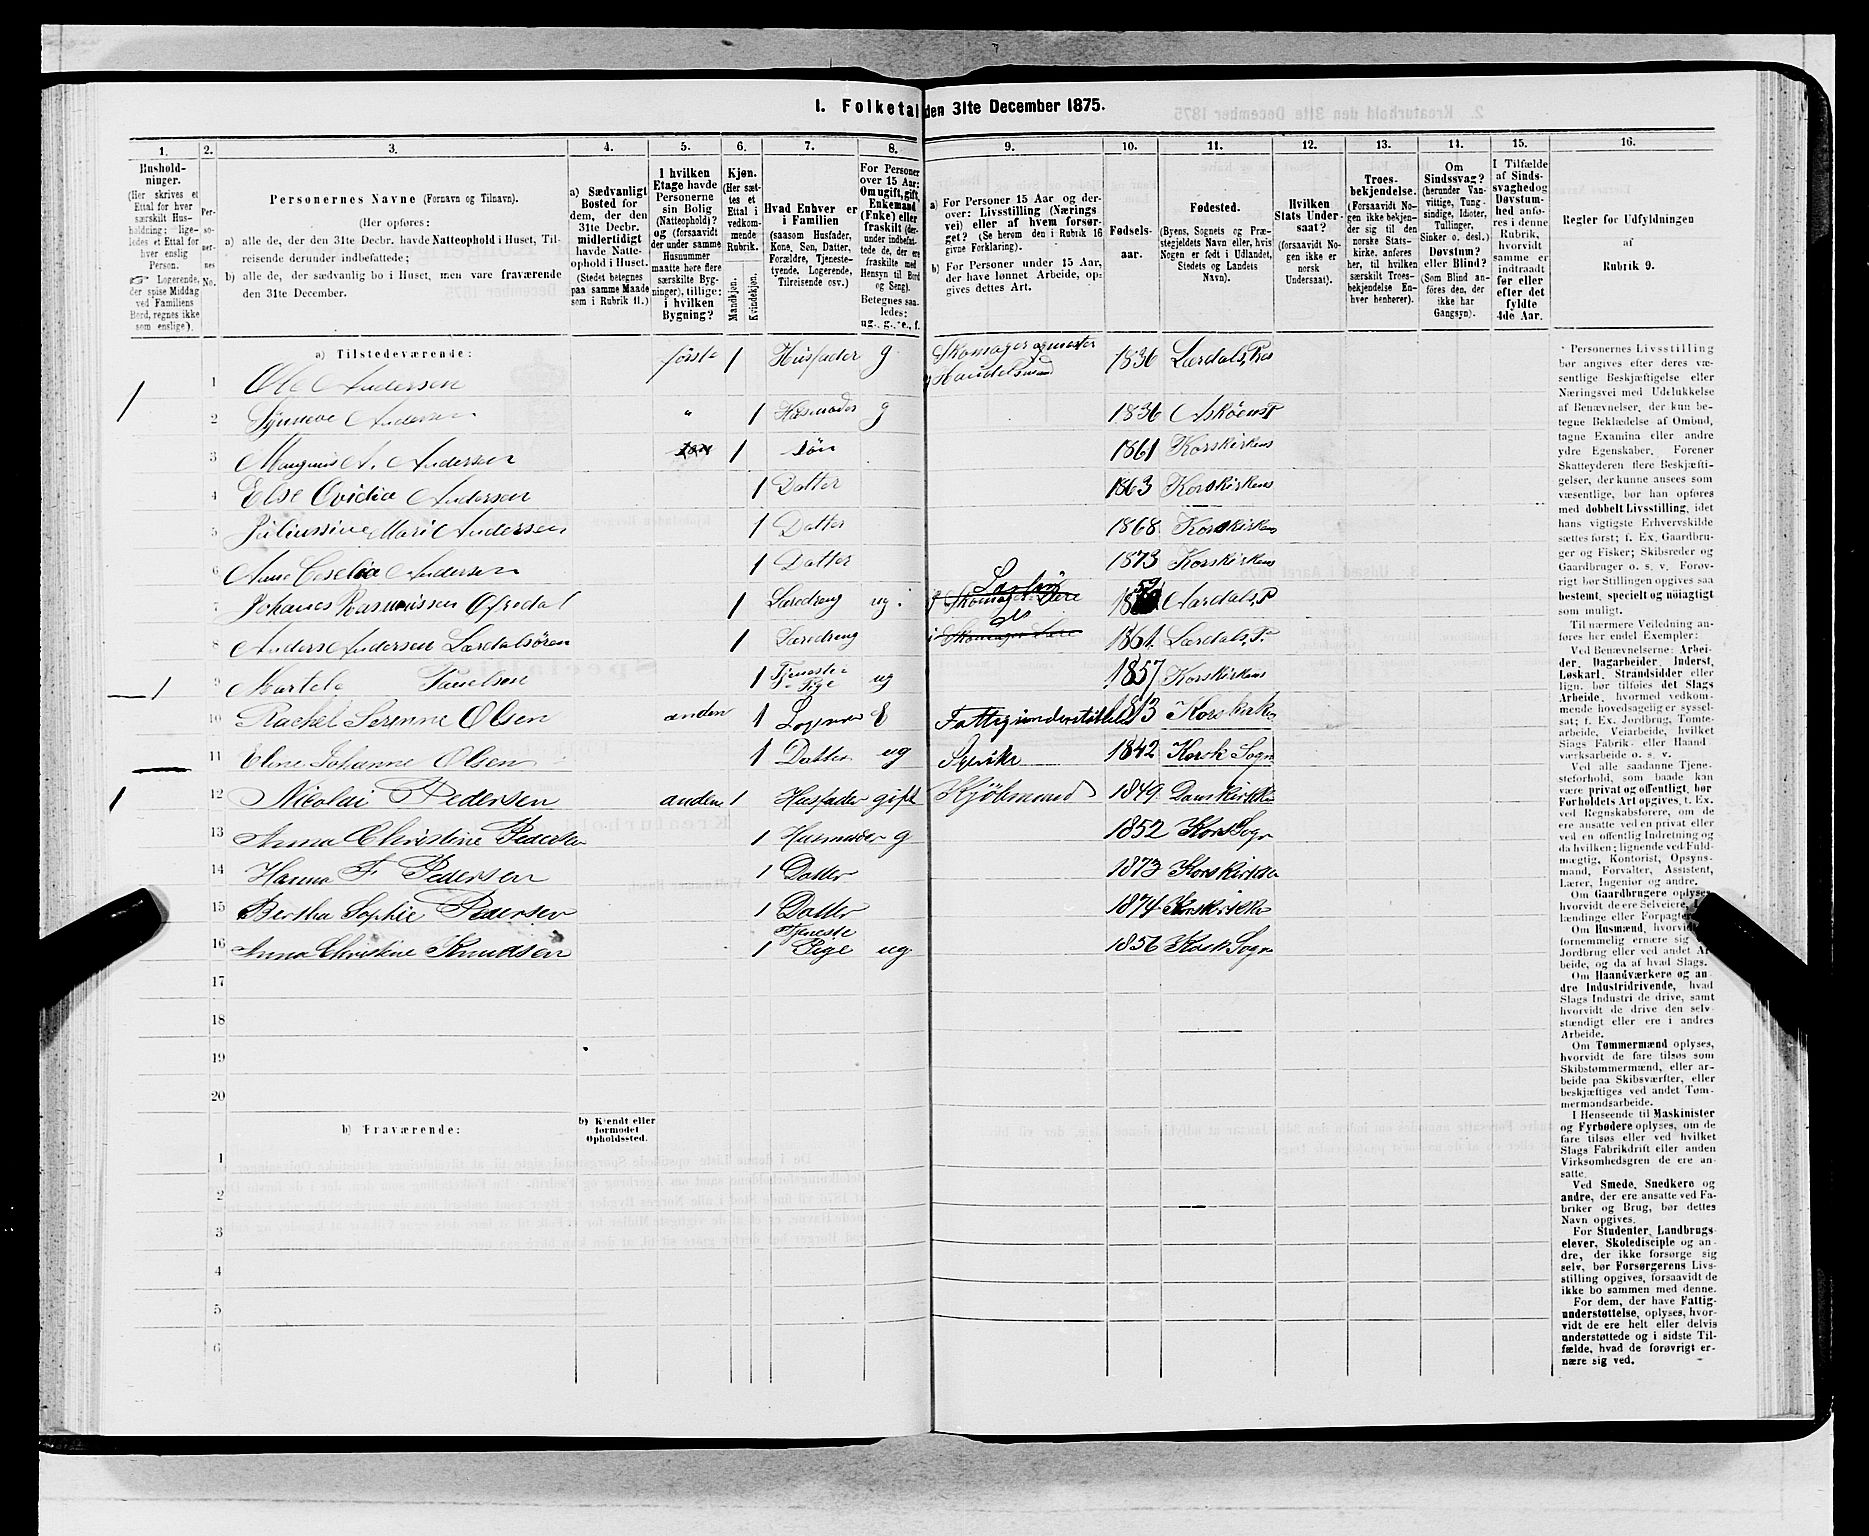 I. Folketal den 31te December 1875.
1. 2. 3. 4. 5. 6. 7. 8. 9. 10. 11. 12. 13. 14. 15. 16.
Hushold-
ninger.
(Her skrives et
Ettal for hver
særskilt Hus-
holdning; lige-
ledes et Ettal for
hver enslig
Person.
Logerende,
der spise Middag
ved Familiens
Bord, regnes ikke
som enslige).
Per-
so-
ner-
nes
No.
Personernes Navne (Fornavn og Tilnavn).
(Her opføres:
a) alle de, der den 31te Decbr. havde Natteophold i Huset, Til-
reisende derunder indbefattede;
b) alle de, der sædvanlig bo i Huset, men vare fraværende
den 31te December.
a) Sædvanligt
Bosted for
dem, der den
31te Decbr.
midlertidigt
havde Natte-
ophold i Huset.
(Stedet betegnes
paa samme Maade
som i Rubrik 11.)
I hvilken
Etage havde
Personerne
sin Bolig
(Natteophold)?
og (forsaavidt
der under samme
Husnummer
maatte høre flere
særskilte Byg-
ninger), tillige:
i hvilken
Bygning?
Kjøn.
(Her sæt-
tes et
Ettal i
vedkom-
mende
Rubrik.
Mandkjøn.
Kvindekjøn.
Hvad Enhver er
i Familien
(saasom Husfader,
Kone, Søn, Datter,
Forældre, Tjeneste-
tyende, Logerende,
Tilreisende osv.)
For Personer
over 15 Aar:
Om ugift, gift,
Enkemand
(Enke) eller
fraskilt (der-
under indbefat-
tede de, der ere
fraskilte med
Hensyn til Bord
og Seng).
Betegnes saa-
ledes:
ug., g., e., f.
a) For Personer 15 Aar og der-
over: Livsstilling (Nærings
vei) eller af hvem forsør-
get? (Se herom den i Rubrik 16
givne Forklaring).
b) For Personer under 15 Aar,
der have lønnet Arbeide, op-
gives dettes Art.
Fødsels-
aar.
Fødested.
(Byens, Sognets og Præ-
stegjeldets Navn eller, hvis
Nogen er født i Udlandet,
Stedets og Landets
Navn).
Hvilken
Stats Under-
saat?
(forsaavidt No-
gen ikke er
norsk
Undersaat).
Troes-
bekjendelse.
(Forsaavidt No-
gen ikke bekjen-
der sig til den
norske Stats-
kirke, anføres
her, til hvilken
særskilt Troes-
bekjendelse En-
hver henhører).
Om
Sindssvag?
(herunder Van-
vittige, Tung
sindige, Idioter,
Tullinger,
Sinker o. desl.)
Døvstum?
eller Blind?
(Som Blind an-
føres den, der
ikke har
Gangsyn).
I Tilfælde
af Sinds-
svaghed og
Døvstum-
hed anfø-
res i denne
Rubrik,
hvorvidt
samme er
indtraadt
før eller
efter det
fyldte
4de Aar.
Regler for Udfyldningen
af
Rubrik 9.
a) Tilstedeværende:
1 Ole Andersen første 1 Husfader g Skomagermester og Handelsmand 1836 Lærdals, Præs
2 Synneve Andersen " 1 Husmoder g 1836 Askøens P
3 Magnus A. Andersen 1 Søn 1861 Korskirkens
4 Else Ovidia Andersen 1 Datter 1863 Korskirkens
5 Juliussine Marie Andersen 1 Datter 1868 Korskirkens
6 Ane Andersen 1 Datter 1873 Korskirkens
7 Johanes Rasmussen Ofredal 1 Læredreng ug. i Skomager Lære Aardals, P
8 Anders Andersen Lærdalsøren 1 Læredreng i Skomager Lære do 1861 Lærdals, P.
9 Martele 1 Tjeneste Pige ug 1857 Korskirkens
10 Rachel Serinne Olsen anden 1 Logerende E Fattigunderstøttelse 1813 Korskirken
11 Eline Johanne Olsen 1 Datter ug Syerske 1842 Korsk Sogn
12 Nicolai Pedersen anden 1 Husfader gift Kjøbmand 1849 Domkirken
13 Anna Christine Pedersen 1 Husmoder g 1852 Kors Sogn
14 Hanna F Pedersen 1 Datter 1873 Korskirken
15 Bertha Sophie Pedersen 1 Datter 1874 Korskirken
16 Anna Christine Knudsen 1 Tjeneste Pige ug 1856 Korsk Sogn
17
18
19
20
b) Fraværende:
b) Kjendt eller
formodet
Opholdssted.
1
2
3
4
5
6
Personernes Livsstilling
bør angives efter deres væ-
sentlige Beskjæftigelse eller
Næringsvei med Udelukkelse
af Benævnelser, der kun be-
tegne Beklædelse af Ombud,
tagne Examina eller andre
ydre Egenskaber. Forener
Skatteyderen flere Beskjæfti-
gelser, der kunne ansees som
væsentlige, bør han opføres
med dobbelt Livsstilling, idet
hans vigtigste Erhvervskilde
sættes først; f. Ex. Gaardbru-
ger og Fisker; Skibsreder og
Gaardbruger o. s. v. Forøv-
rigt bør Stillingen opgives saa
bestemt, specielt og nøiagtigt
som muligt.
Til nærmere Veiledning an-
føres her endel Exempler:
Ved Benævnelserne: Arbei-
der, Dagarbeider, Inderst,
Løskarl, Strandsidder eller
lign. bør tilføies det Slags
Arbeide, hvormed vedkom-
mende hovedsagelig er syssel-
sat; f. Ex. Jordbrug, Tømte-
arbeide, Veiarbeide, hvilket
Slags Fabrik- eller Haand
værksarbeide o. s. v.
Ved alle saadanne Tjene-
steforhold, som baade kan
være privat og offentligt, bør
Forholdets Art opgives, f. Ex.
ved Regnskabsførere, om de
ere ansatte ved en privat eller
ved en offentlig Indretning og
da hvilken; lignende ved Fuld-
mægtig, Kontorist, Opsyns-
mand, Forvalter, Assistent,
Lærer, Ingeniør og andre.
Om Gaardbrugere oplyses,
hvorvidt de ere Selveiere,
lændinge eller Forpagtere
Om Husmænd, hvorvidt
fornemmelig ernære sig
Jordbrug eller ved andet Ar-
beide, og da af hvad Slags.
Om Haandværkere og an
dre Industridrivende, hvad
Slags Industri de drive, samt
hvorvidt de drive den selv-
stændigt eller ere i andres
Arbeide.
Om Tømmermænd oplyses,
hvorvidt de fare tilsøs som
Skibstømmermænd, eller ar-
beide paa Skibsværfter, eller
beskjæftiges ved andet Tøm-
mermandsarbeide.
I Henseende til Maskinister
og Fyrbødere oplyses, om de
fare tilsøs eller ved hvilket
Slags Fabrikdrift eller anden
Virksomhedsgren de ere an-
satte.
Ved Smede, Snedkere og
andre, der ere ansatte ved Fa-
briker og Brug, bør dettes
Navn opgives.
For Studenter, Landbrugs-
elever, Skoledisciple og an-
dre, der ikke forsørge sig
selv, bør Forsørgerens Livs-
stilling opgives, forsaavidt de
ikke bo sammen med denne.
For dem, der have Fattig-
understøttelse, oplyses, hvor-
vidt de ere helt eller delvis
understøttede og i sidste Til-
fælde, hvad de forøvrigt er-
nære sig ved.